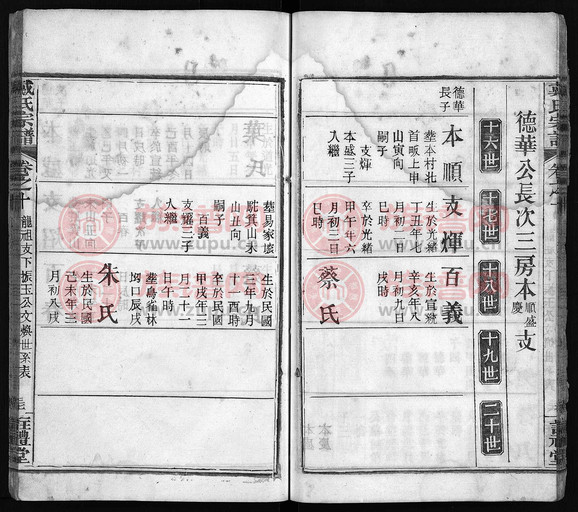 德華公長次三房本順盛慶支
十六世
十七世
十八世
十九世
二十世
德華
長子
本順
葬本村北
首畈上申
山寅向
嗣子
支煇
本盛三子
入繼
支煇
生於光緒
丁丑年七
月初二日
巳時
卒於光緒
甲午年六
月初三日
巳時
葬易家塝
駝箕山來
山丑向
嗣子
百義
三子
入繼
百義
生於宣統
辛亥年八
月初九日
戌時
蔡氏
生於民國
三年九月
十一酉時
卒於民國
甲戌年三
月二十一
日午時
葬烏雀林
坳口辰戌
朱氏
生於民國
己未年三
月初八戌
氏宗譜
卷之十
支下振玉公文煥世系表
三
禮堂